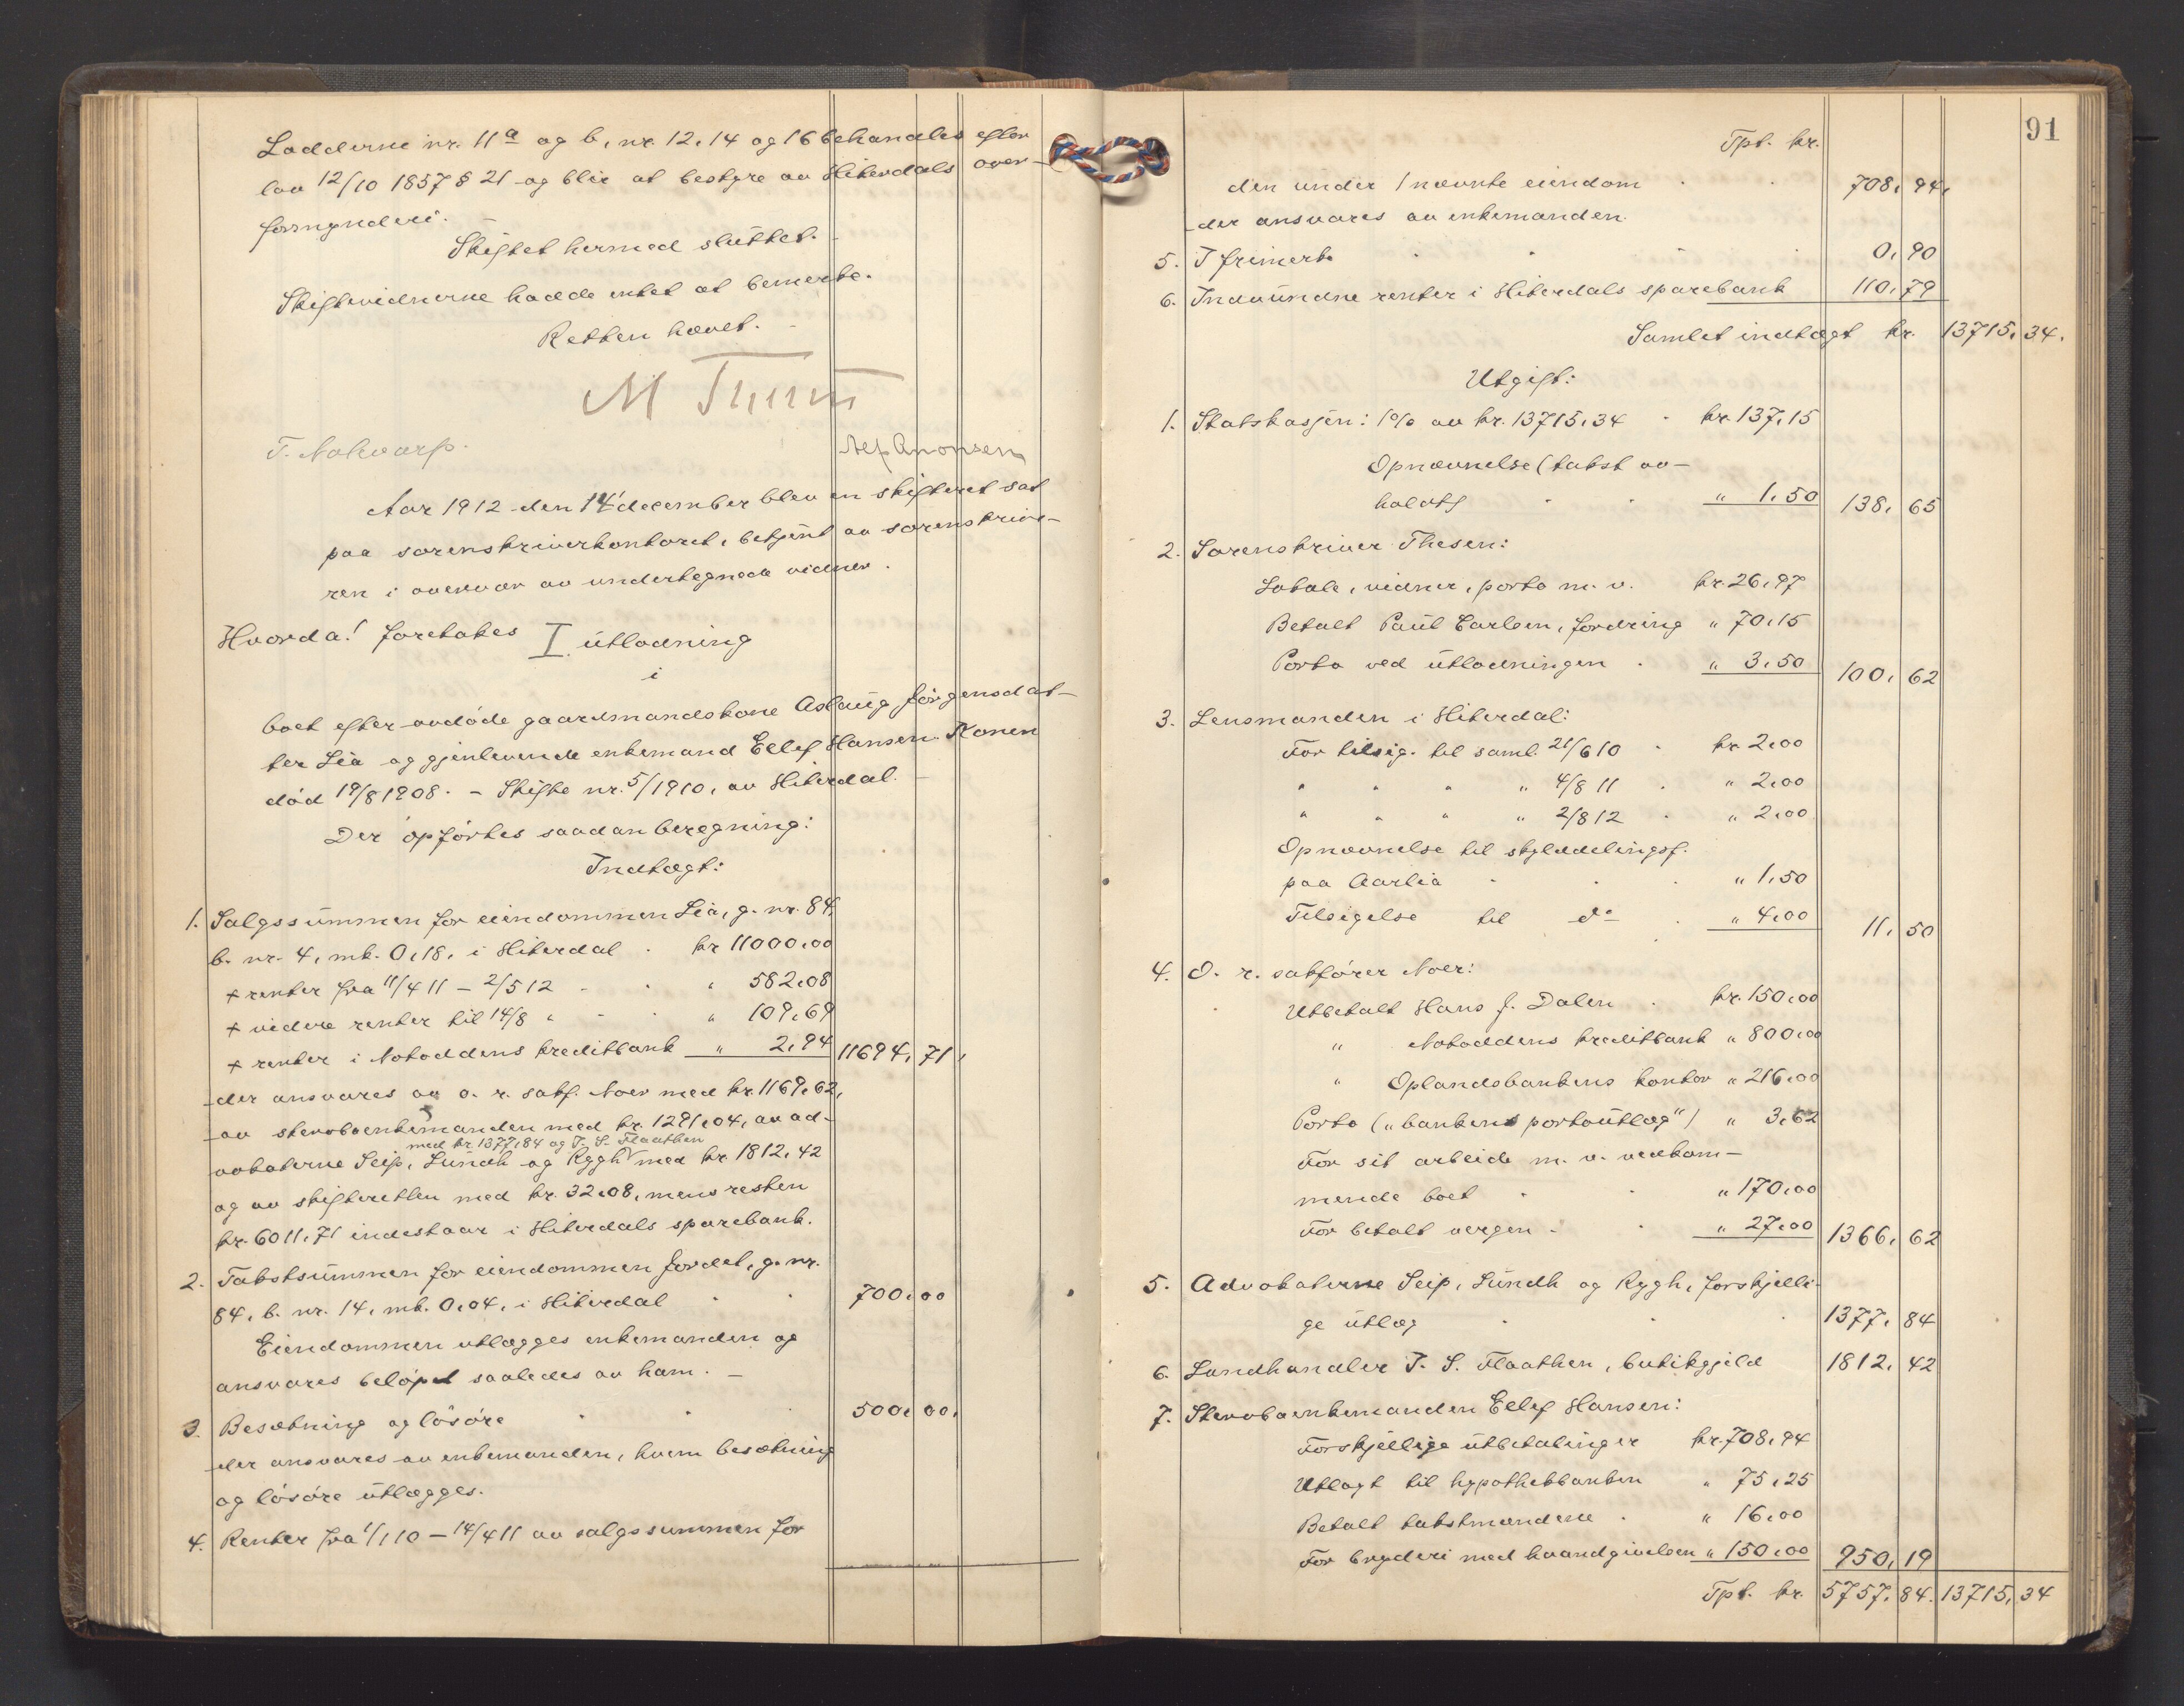 Lodderne nr. 11a og b, nr. 12, 14 og 16 behandles efter
lov 12/10 1857 § 21 og blir at bestyre av Hiterdals over-
formynderi.
Skiftet hermed sluttet.
Skiftevidnerne hadde intet at bemerke.
Retten hævet.
T. Nokvarp.
Alf Anonsen
Aar 1912 den 14' december blev en skifteret sat
paa sorenskriverkontoret, betjent av sorenskrive-
ren i overvær av undertegnede vidner.
Hvorda! foretokes I. utlodning
i
boet efter avdøde gaardmandskone Aslaug Jørgensdat-
ter Lia og gjenlevende enkemand Ellef Hansen. Konen
død 19/8 1908. - Skifte nr. 5/1910, av Hiterdal.
Der opførtes saadan beregning:
Indtægt:
1. Salgssummen for eiendommen Lia, g. nr. 84,
b. nr. 4, mk. 0,18, i Hiterdal . kr 11000,00
+ renter fra 11/4 11 - 2/5 12 . " 582,08
+ videre renter til 14/8 " . " 109,69
+ renter i Notoddens kreditbank " 2,94 11694, 71,
der ansvares av o. r. sakf. Noer med kr. 1169,62,
av stervboenkemanden med kr. 1291,04, av ad-
med kr. 1377,84 og T. S. Flaathen
vokaterne Seip, Lundh og Rygh med kr 1812,42
og av skifteretten med kr. 32,08, mens resten
kr. 6011,71 indestaar i Hiterdals sparebank.
2. Takstsummen for eiendommen Jordet, g. nr.
84, b. nr. 14, mk. 0,04, i Hiterdal . . 700,00
Eiendommen utlægges enkemanden og
ansvares beløpet saaledes av ham. -
3. Besætning og løsøre . . . 500, 00,
der ansvares av enkemanden, hvem besætning
og løsøre utlægges.
4. Renter fra 1/1 10 - 14/4 11 av salgssummen for
91
Tpt. kr.
den under 1 nævnte eiendom . . 708, 94,
der ansvares av enkemanden.
5. I frimerk. . . . 0,90
6. Indvundne renter i Hiterdals sparebank 110,79
Samlet indtægt kr. 13715, 34.
Utgift:
1. Statskassen: 1% av kr. 13715,34 . kr. 137,15
Opnævnelse (takst av-
holdt) . . " 1,50 138, 65
2. Sorenskriver Thesen:
Lokale, vidner, porto m. v. kr. 26,97
Betalt Paul Carlsen, fordring " 70,15
Porto ved utlodningen . " 3,50 100, 62
3. Lensmanden i Hiterdal:
For tilsig. til saml. 21/6 10 . kr 2,00
" " " " 4/8 11 . " 2,00
" " " " 2/8 12 . " 2,00
Opnævnelse til skylddelingsf.
paa Aarlia . . . " 1,50
Tilsigelse til do . " 4,00 11, 50
4. O. r. sakfører Noer:
Utbetalt Hans J. Dalen . kr. 150,00
" Notoddens kreditbank " 800,00
" Oplandsbankens kontor " 216,00
Porto („bankens portoutlæg“) " 3,62
For sit arbeide m. v. vedkom-
mende boet . . " 170,00
For betalt vergen . . " 27,00 1366, 62
5. Advokaterne Seip, Lundh og Rygh, forskjelli-
ge utlæg . . . 1377, 84
6. Landhandler T. S. Flaathen, butikgjeld 1812, 42
7. Stervboenkemanden Ellef Hansen:
Forskjellige utbetalinger kr. 708,94
Utlagt til hypothekbanken " 75,25
Betalt takstmændene . " 16,00
For bryderi med haandgivelsen " 150,00 950, 19
Tpt. kr. 5757, 84. 13715, 34